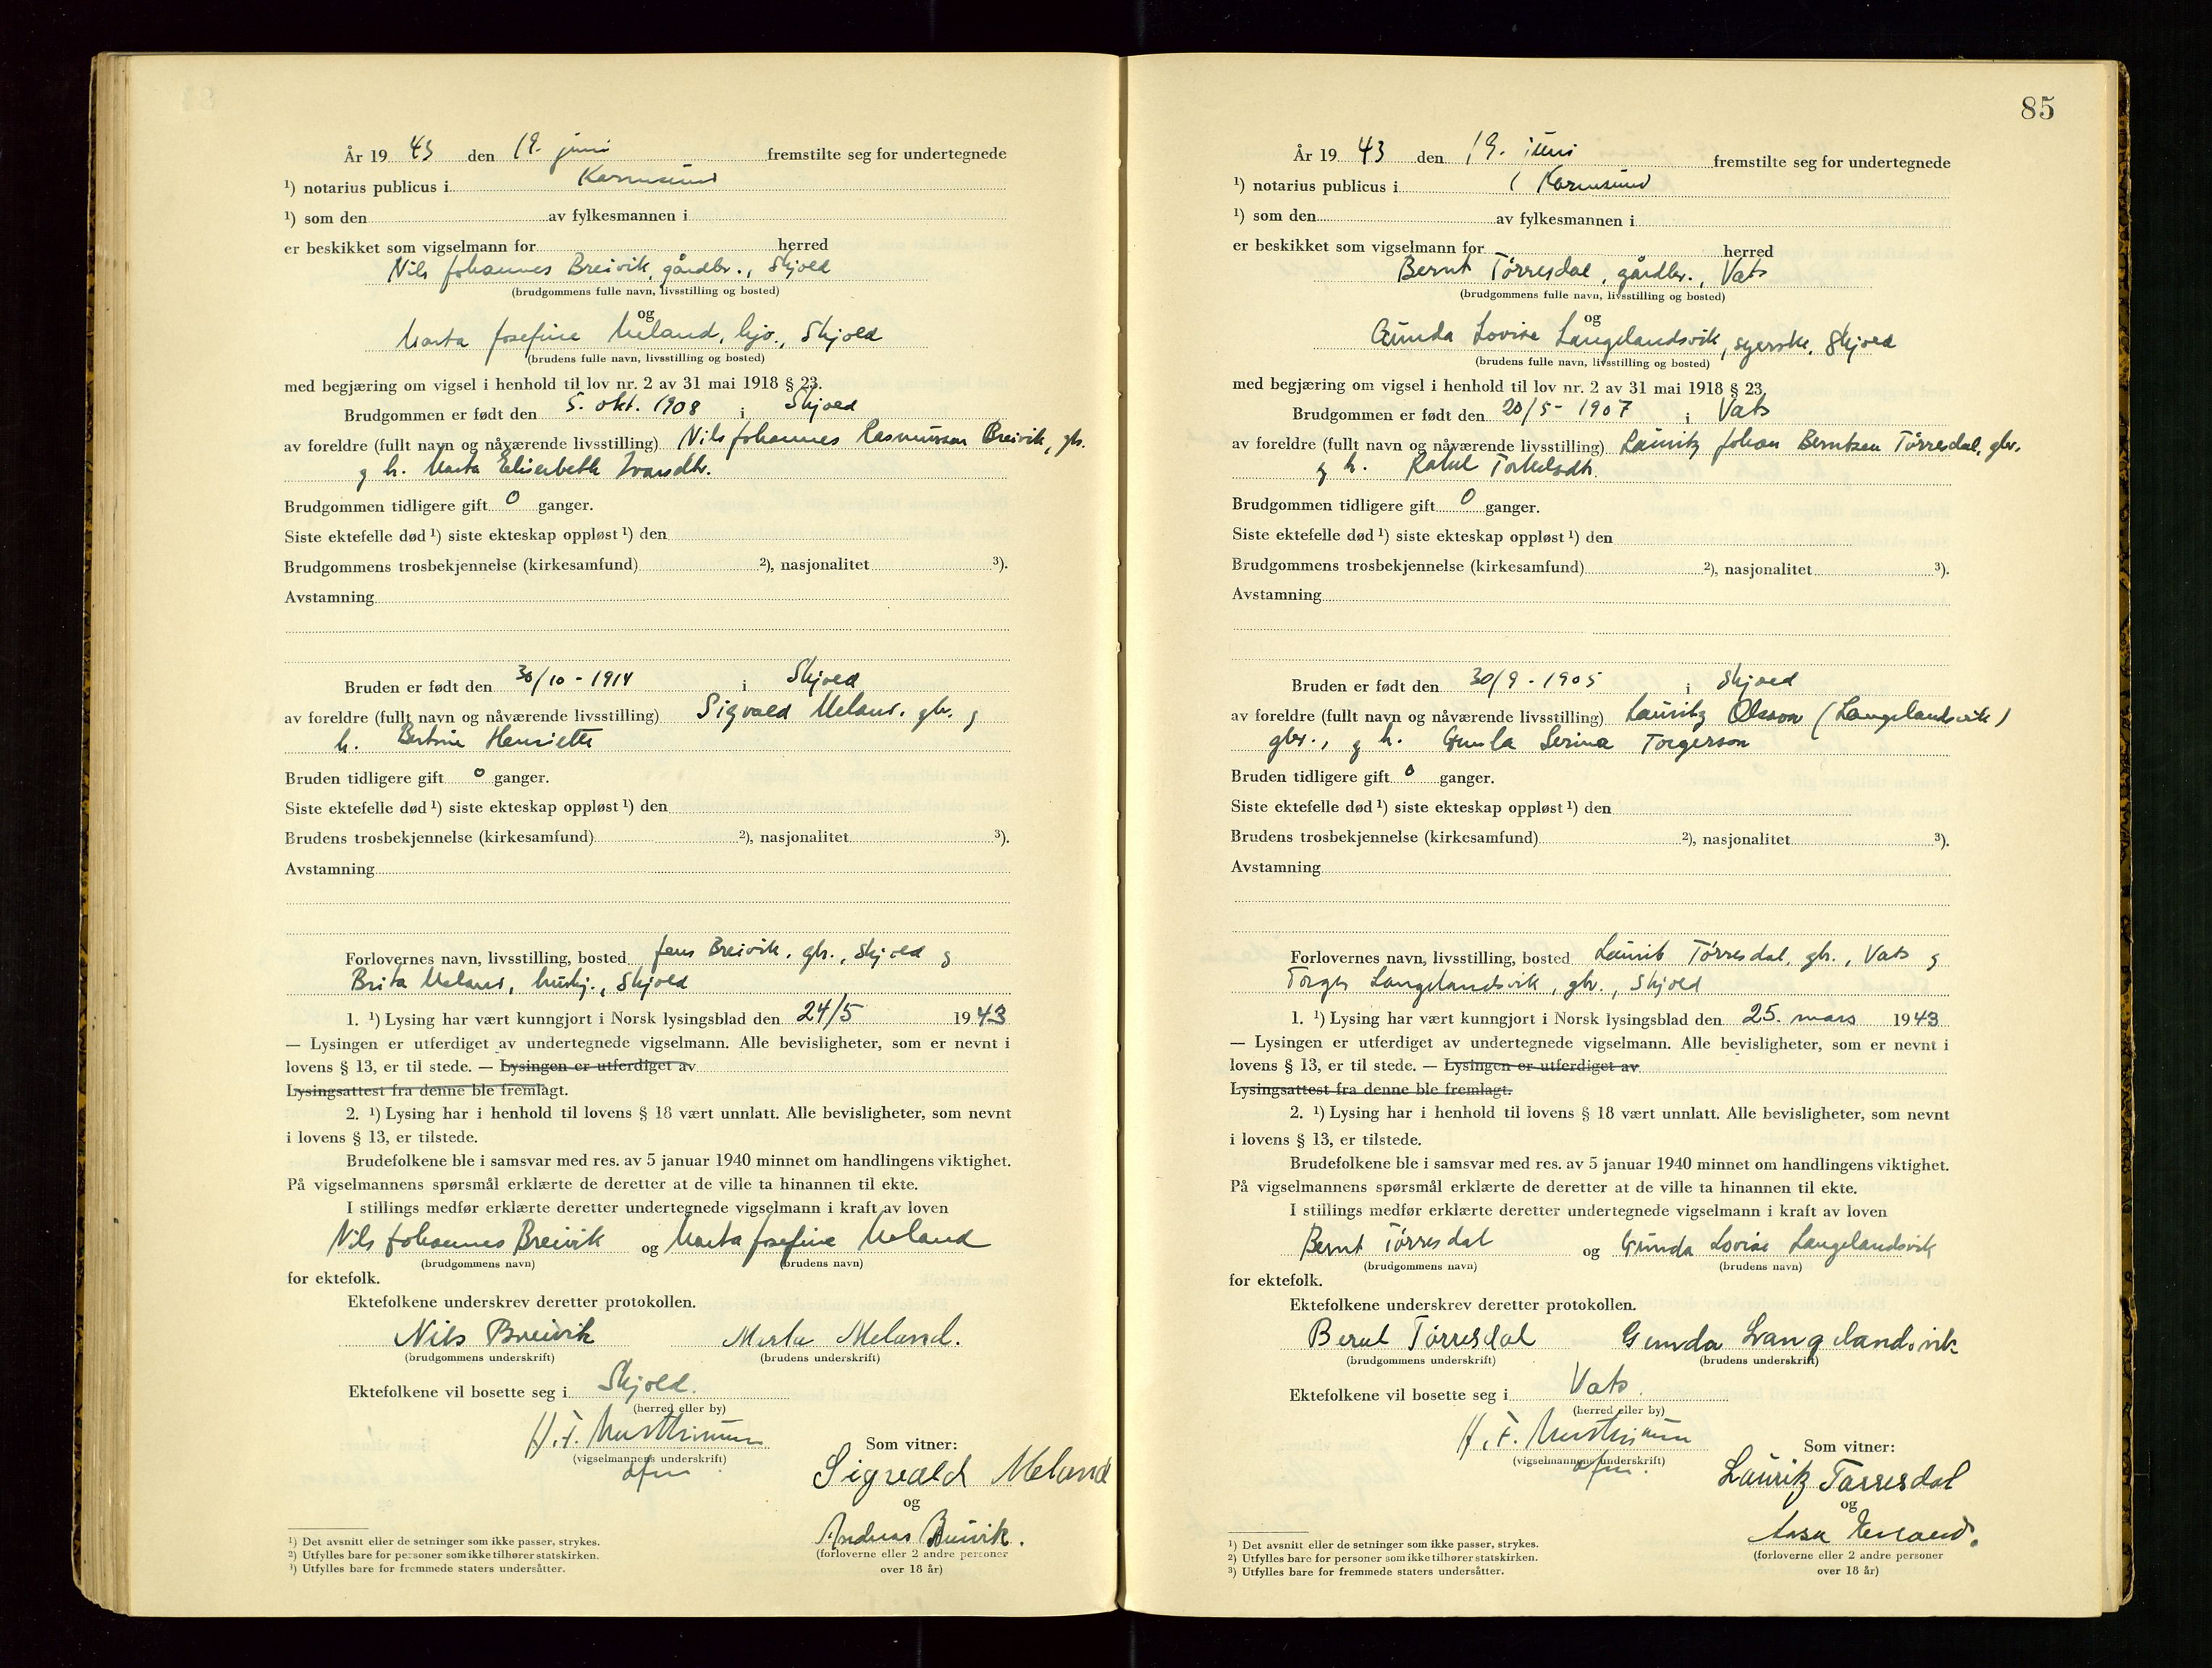 År 19 43 den 19. juni fremstilte seg for undertegnede
¹) notarius publicus i Karmsund
¹) som den av fylkesmannen i
er beskikket som vigselmann for herred
Nils Johannes Breivik, gårdbr., Skjold
(brudgommens fulle navn, livsstilling og bosted)
og
Marta Josefine Meland, hjv., Skjold
(brudens fulle navn, livsstilling og bosted)
med begjæring om vigsel i henhold til lov nr. 2 av 31 mai 1918 § 23.
Brudgommen er født den 5. okt. 1908 i Skjold
av foreldre (fullt navn og nåværende livsstilling) Nils Johannes Rasmussen Breivik, gbr.
g h. Marta Elisabeth Ivarsdtr.
Brudgommen tidligere gift 0 ganger.
Siste ektefelle død ¹) siste ekteskap oppløst ¹) den
Brudgommens trosbekjennelse (kirkesamfund) ²), nasjonalitet ³).
Avstamning
Bruden er født den 30/10 - 1914 i Skjold
av foreldre (fullt navn og nåværende livsstilling) Sigvald Meland, gbr. g
h. Bertine Henriette
Bruden tidligere gift 0 ganger.
Siste ektefelle død ¹) siste ekteskap oppløst ¹) den
Brudens trosbekjennelse (kirkesamfund) ²), nasjonalitet ³).
Avstamning
Forlovernes navn, livsstilling, bosted Jens Breivik, gbr., Skjold g
Brita Meland, hushj., Skjold
1. ¹) Lysing har vært kunngjort i Norsk lysingsblad den 24/5 19 43
— Lysingen er utferdiget av undertegnede vigselmann. Alle bevisligheter, som er nevnt i
lovens § 13, er til stede. — Lysingen er utferdiget av
Lysingsattest fra denne ble fremlagt.
2. ¹) Lysing har i henhold til lovens § 18 vært unnlatt. Alle bevisligheter, som nevnt
i lovens § 13, er tilstede.
Brudefolkene ble i samsvar med res. av 5 januar 1940 minnet om handlingens viktighet.
På vigselmannens spørsmål erklærte de deretter at de ville ta hinannen til ekte.
I stillings medfør erklærte deretter undertegnede vigselmann i kraft av loven
Nils Johannes Breivik og Marta Josefine Meland
(brudgommens navn) (brudens navn)
for ektefolk.
Ektefolkene underskrev deretter protokollen.
Nils Breivik Marta Meland.
(brudgommens underskrift) (brudens underskrift)
Ektefolkene vil bosette seg i Skjold.
(herred eller by)
H. F.
(vigselmannens underskrift)
Som vitner:
Sigvald Meland
og
Andreas Breivik.
(forloverne eller 2 andre personer
over 18 år)
¹) Det avsnitt eller de setninger som ikke passer, strykes.
²) Utfylles bare for personer som ikke tilhører statskirken.
³) Utfylles bare for fremmede staters undersåtter.
85
År 19 43 den 19. juni fremstilte seg for undertegnede
¹) notarius publicus i Karmsund
¹) som den av fylkesmannen i
er beskikket som vigselmann for herred
Bernt Tørresdal, gårdbr., Vats
(brudgommens fulle navn, livsstilling og bosted)
og
Gunda Lovise Langelandsvik, syerske, Skjold
(brudens fulle navn, livsstilling og bosted)
med begjæring om vigsel i henhold til lov nr. 2 av 31 mai 1918 § 23.
Brudgommen er født den 20/5 - 1907 i Vats
av foreldre (fullt navn og nåværende livsstilling) Lauritz Johan Berntsen Tørresdal, gbr.
g h. Rakel Torkelsdtr.
Brudgommen tidligere gift 0 ganger.
Siste ektefelle død ¹) siste ekteskap oppløst ¹) den
Brudgommens trosbekjennelse (kirkesamfund) ²), nasjonalitet ³).
Avstamning
Bruden er født den 30/9 - 1905 i Skjold
av foreldre (fullt navn og nåværende livsstilling) Lauritz Olsson (Langelandsvik)
gbr., g h. Gunla Serina Torgerson
Bruden tidligere gift 0 ganger.
Siste ektefelle død ¹) siste ekteskap oppløst ¹) den
Brudens trosbekjennelse (kirkesamfund) ²), nasjonalitet ³).
Avstamning
Forlovernes navn, livsstilling, bosted Laurits Tørresdal, gbr., Vats g
Torger Langelandsvik, gbr., Skjold
1. ¹) Lysing har vært kunngjort i Norsk lysingsblad den 25. mars 19 43
— Lysingen er utferdiget av undertegnede vigselmann. Alle bevisligheter, som er nevnt i
lovens § 13, er til stede. — Lysingen er utferdiget av
Lysingsattest fra denne ble fremlagt.
2. ¹) Lysing har i henhold til lovens § 18 vært unnlatt. Alle bevisligheter, som nevnt
i lovens § 13, er tilstede.
Brudefolkene ble i samsvar med res. av 5 januar 1940 minnet om handlingens viktighet.
På vigselmannens spørsmål erklærte de deretter at de ville ta hinannen til ekte.
I stillings medfør erklærte deretter undertegnede vigselmann i kraft av loven
Bernt Tørresdal og Gunda Lovise Langelandsvik
(brudgommens navn) (brudens navn)
for ektefolk.
Ektefolkene underskrev deretter protokollen.
Bernt Tørresdal Gunda Langelandsvik
(brudgommens underskrift) (brudens underskrift)
Ektefolkene vil bosette seg i Vats.
(herred eller by)
H. F.
(vigselmannens underskrift)
Som vitner:
Lauritz Tørresdal
og
(forloverne eller 2 andre personer
over 18 år)
¹) Det avsnitt eller de setninger som ikke passer, strykes.
²) Utfylles bare for personer som ikke tilhører statskirken.
³) Utfylles bare for fremmede staters undersåtter.